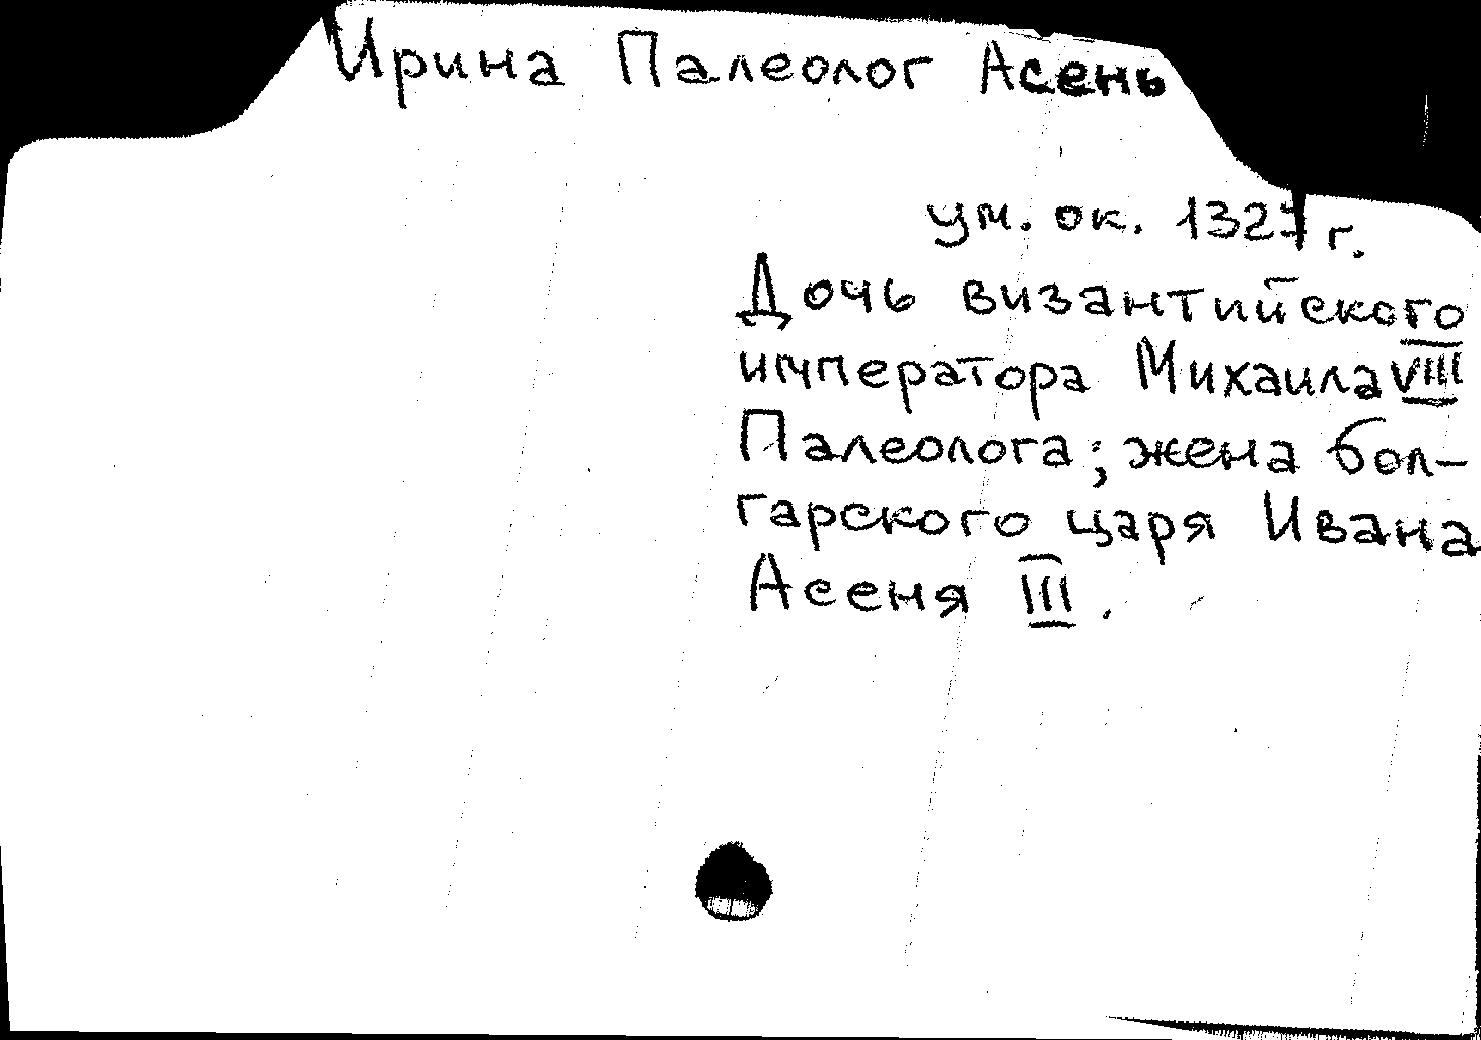 Ирина Палеолог Асень
ум. ок. 1327 г.
Дочь византийского
императора Михаила VIII
Палеолога; жена бол-
гарского царя Ивана
Асеня III.